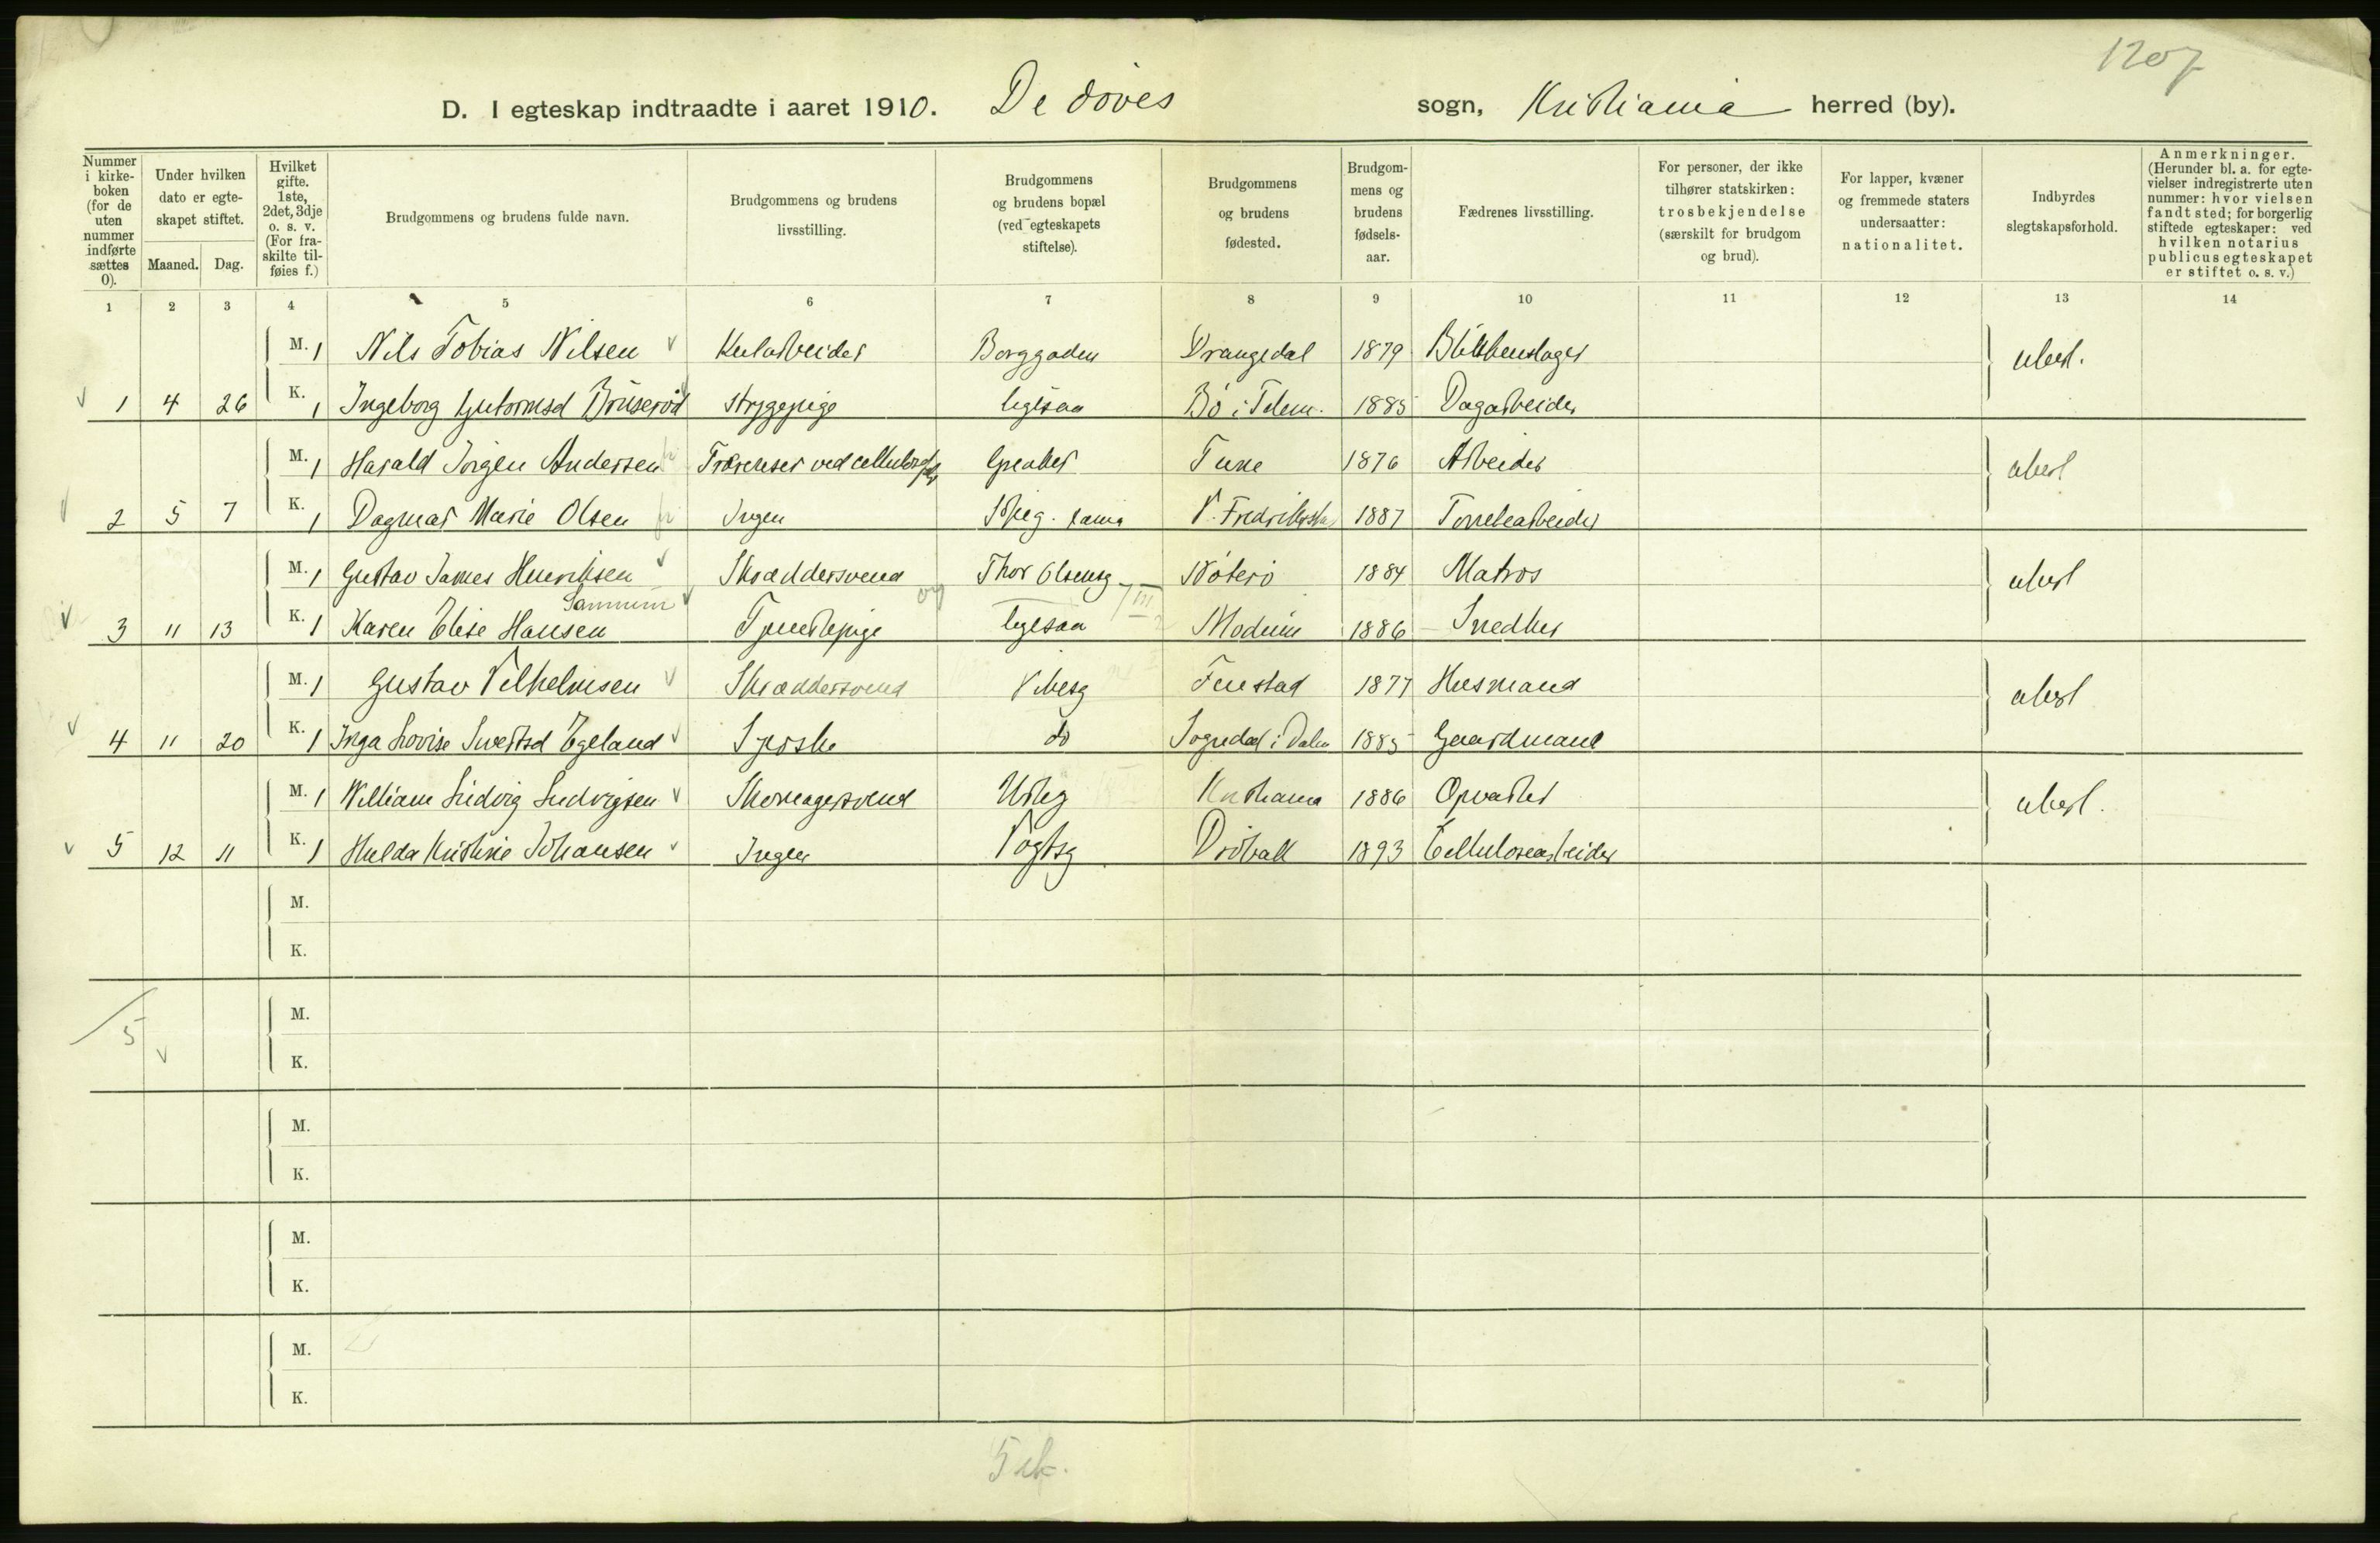 1207
D. I egteskap indtraadte i aaret 1910. De døves sogn, Kristiania herred (by).
Nummer i kirkeboken (for de uten nummer indførte sættes 0).
Under hvilken dato er egteskapet stiftet.
Maaned. Dag.
Hvilket gifte. 1ste, 2det, 3dje o. s. v. (For fraskilte tilføies f.)
Brudgommens og brudens fulde navn.
Brudgommens og brudens livsstilling.
Brudgommens og brudens bopæl (ved egteskapets stiftelse).
Brudgommens og brudens fødested.
Brudgommens og brudens fødselsaar.
Fædrenes livsstilling.
For personer, der ikke tilhører statskirken: trosbekjendelse (særskilt for brudgom og brud).
For lapper, kvæner og fremmede staters undersaatter: nationalitet.
Indbyrdes slegtskapsforhold.
Anmerkninger. (Herunder bl. a. for egtevielser indregistrerte uten nummer: hvor vielsen fandt sted; for borgerlig stiftede egteskaper: ved hvilken notarius publicus egteskapet er stiftet o. s. v.)
1 2 3 4 5 6 7 8 9 10 11 12 13 14
M. 1 Nils Tobias Nilsen Kularbeider Borggaden Drangedal 1879 Blikkenslager ubesl.
1 4 26 K. 1 Ingeborg Gutormsd Bruserød strygepige ligesaa Bø i Telem. 1885 Dagarbeider
M. 1 Harald Jørgen Andersen Trærenser ved Greaker Tune 1876 Arbeider ubesl
2 5 7 K. 1 Dagmar Marie Olsen Ingen V. Fredrikssta 1887 Tomtearbeider
M. 1 Gustav James Henriksen Skræddersvend Thor Olsensg Nøterø 1884 Matros ubesl
Sammum
3 11 13 K. 1 Karen Elise Hansen Tjenestepige ligesaa Modum 1886 Snedker
M. 1 Gustav Vilhelmsen Skræddersvend Vibesg Fenstad 1877 Husmand ubesl
4 11 20 K. 1 Inga Lovise Sivertsd Egeland Syerske do Sogndal i Dalene 1885 Gaardmand
M. 1 William Ludvig Ludvigsen Skomagersvend Urteg Kristiania 1886 Opvarter ubesl.
5 12 11 K. 1 Hulda Kristine Johansen Ingen Vogtsg Drøbakk 1893 Cellulosearbeider
M.
K.
M.
5
K.
M.
K.
M.
K.
M.
K.
5 ek.